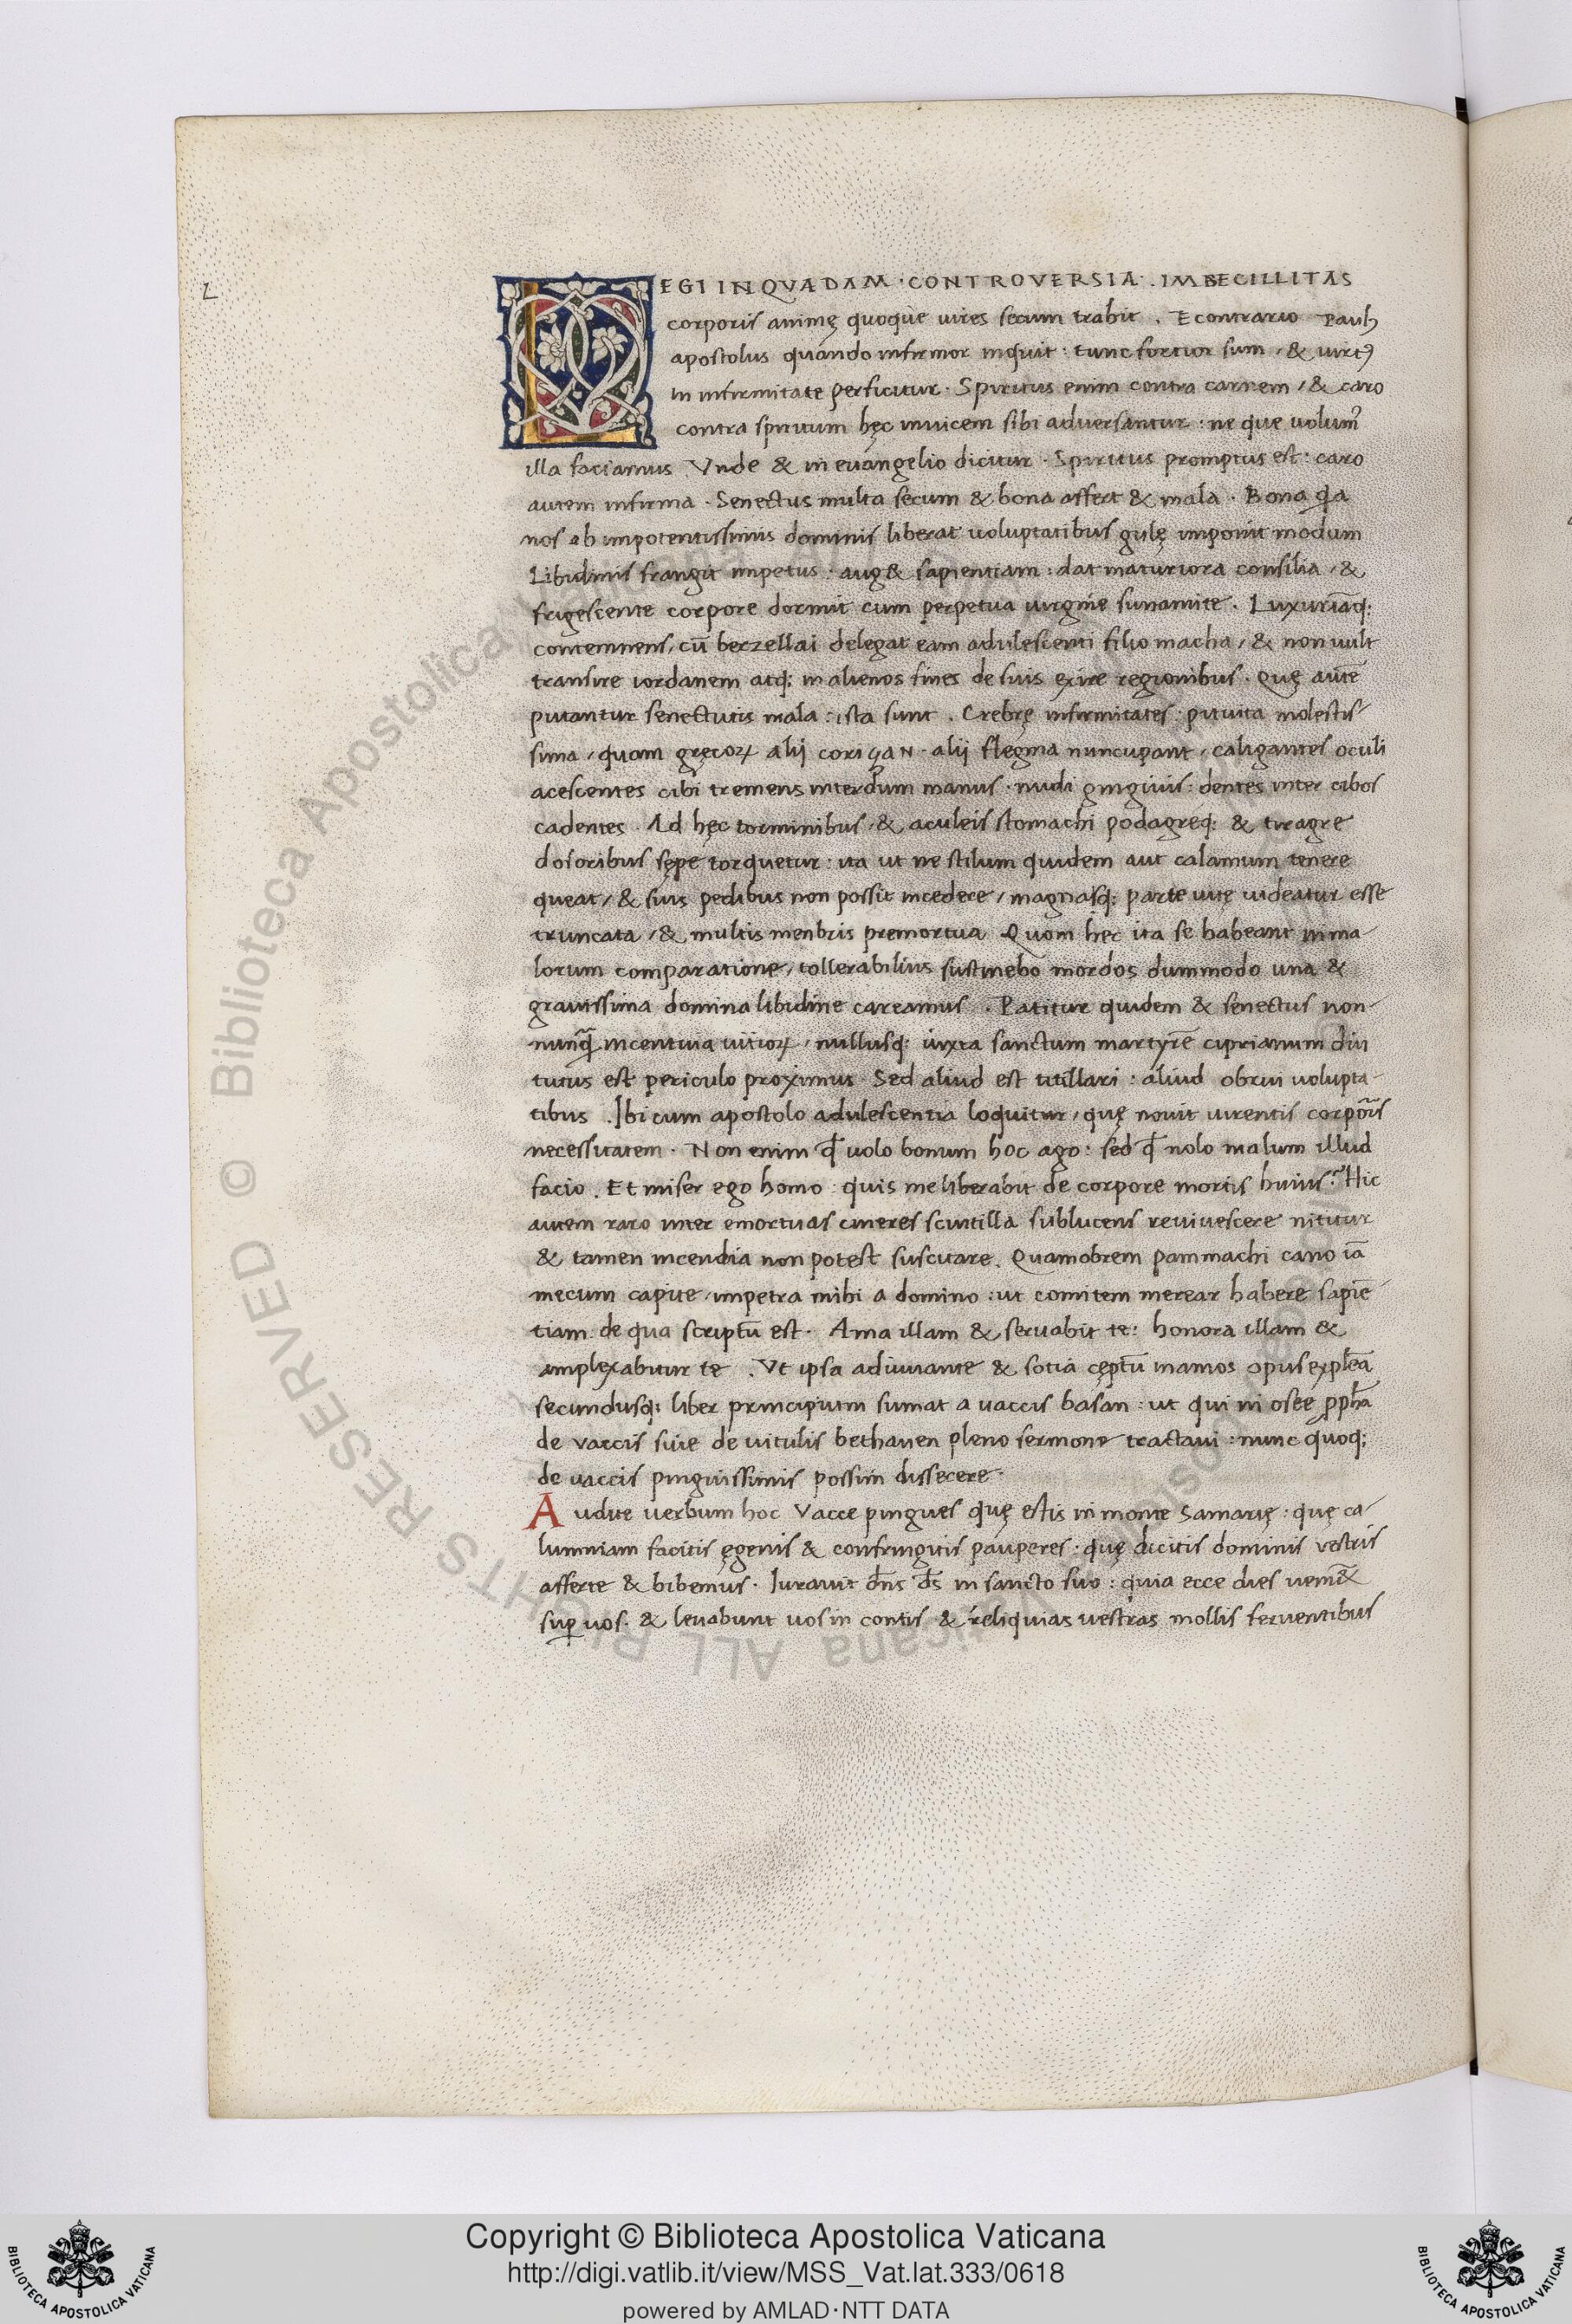 L
LEGI IN QVADAM · CONTROVERSIA · IMBECILLITAS
corporis animę quoque uires secum trahit . E contrario Paulꝰ
apostolus quando infirmor inquit : tunc fortior sum / & uirtꝰ
in infirmitate perficitur · Spiritus enim contra carnem / & caro
contra spiritum hęc inuicem sibi aduersantur : ne que uolumꝰ
illa faciamus Vnde & in euangelio dicitur · Spiritus promptus est : caro
autem infirma · Senectus multa secum & bona affert & mala · Bona q̃a
nos ab impotentissimis dominis liberat uoluptatibus gulę imponit modum
Libidinis frangit impetus · aug& sapientiam : dat maturiora consilia / &
frigescente corpore dormit cum perpetua uirgine sunamite . Luxuriãq;
contemnens / cū berzellai delegat eam adulescenti filio macha / & non uult
transire iordanem atq; in alienos fines de suis exire regionibus · Quę autẽ
putantur senectutis mala : ista sunt . Crebrę infirmitates : pituita molestis-
sima / quam gręcoꝝ alij · alij flegma nuncupant / caligantes oculi
acescentes cibi tremens interdum manus · nudi gingiuis : dentes inter cibos
cadentes · Ad hęc torminibus / & aculeis stomachi podagreq; & ciragre
doloribus sępe torquetur : ita ut ne stilum quidem aut calamum tenere
queat / & suis pedibus non possit incedere / magnasq; parte uitę uideatur esse
truncata / & multis menbris premortua Quom hęc ita se habeant in ma-
lorum comparatione / tollerabilius sustinebo mordos dummodo una &
grauissima domina libidine careamus . Patitur quidem & senectus non-
nunq̃ incentiua uitioꝝ / nullusq; iuxta sanctum martyrẽ ciprianum diu
tutus est periculo proximus · Sed aliud est titillari : aliud obrui uolupta-
tibus . Ibi cum apostolo adulescentia loquitur / quę nouit uirentis corpõris
necessitatem · Non enim q̄ uolo bonum hoc ago : sed q̄ nolo malum illud
facio . Et miser ego homo : quis me liberabit de corpore mortis huius ? Hic
autem raro inter emortuas cineres scintilla sublucens reuiuescere nititur
& tamen incendia non potest suscitare . Quamobrem pammachi cano iã
mecum capite / impetra mihi a domino : ut comitem merear habere sapiẽ-
tiam : de qua scriptū est · Ama illam & seruabit te : honora illam &
amplexabitur te . Vt ipsa adiuuante & sotia cęptū inamos opus explẽã
secundusq; liber principium sumat a uaccis basan : ut qui in osee ꝓpha
de vaccis siue de uitulis bethauen pleno sermone tractaui : nunc quoq;
de uaccis pinguissimis possim dissecere ·
Audite uerbum hoc Vacce pingues quę estis in monte Samarię : quę ca-
lumniam facitis ęgenis & confringitis pauperes · quę dicitis dominis vestris
afferte & bibemus · Iurauit dñs d̄s in sancto suo : quia ecce dies ueni&̄
suꝑ uos · & leuabunt uos in contis & reliquias uestras mollis feruentibus
© Biblioteca Apostolica Vaticana ALL RIGHTS RESERVED
Copyright © Biblioteca Apostolica Vaticana
http://digi.vatlib.it/view/MSS_Vat.lat.333/0618
powered by AMLAD·NTT DATA
BIBLIOTECA APOSTOLICA VATICANA
BIBLIOTECA APOSTOLICA VATICANA